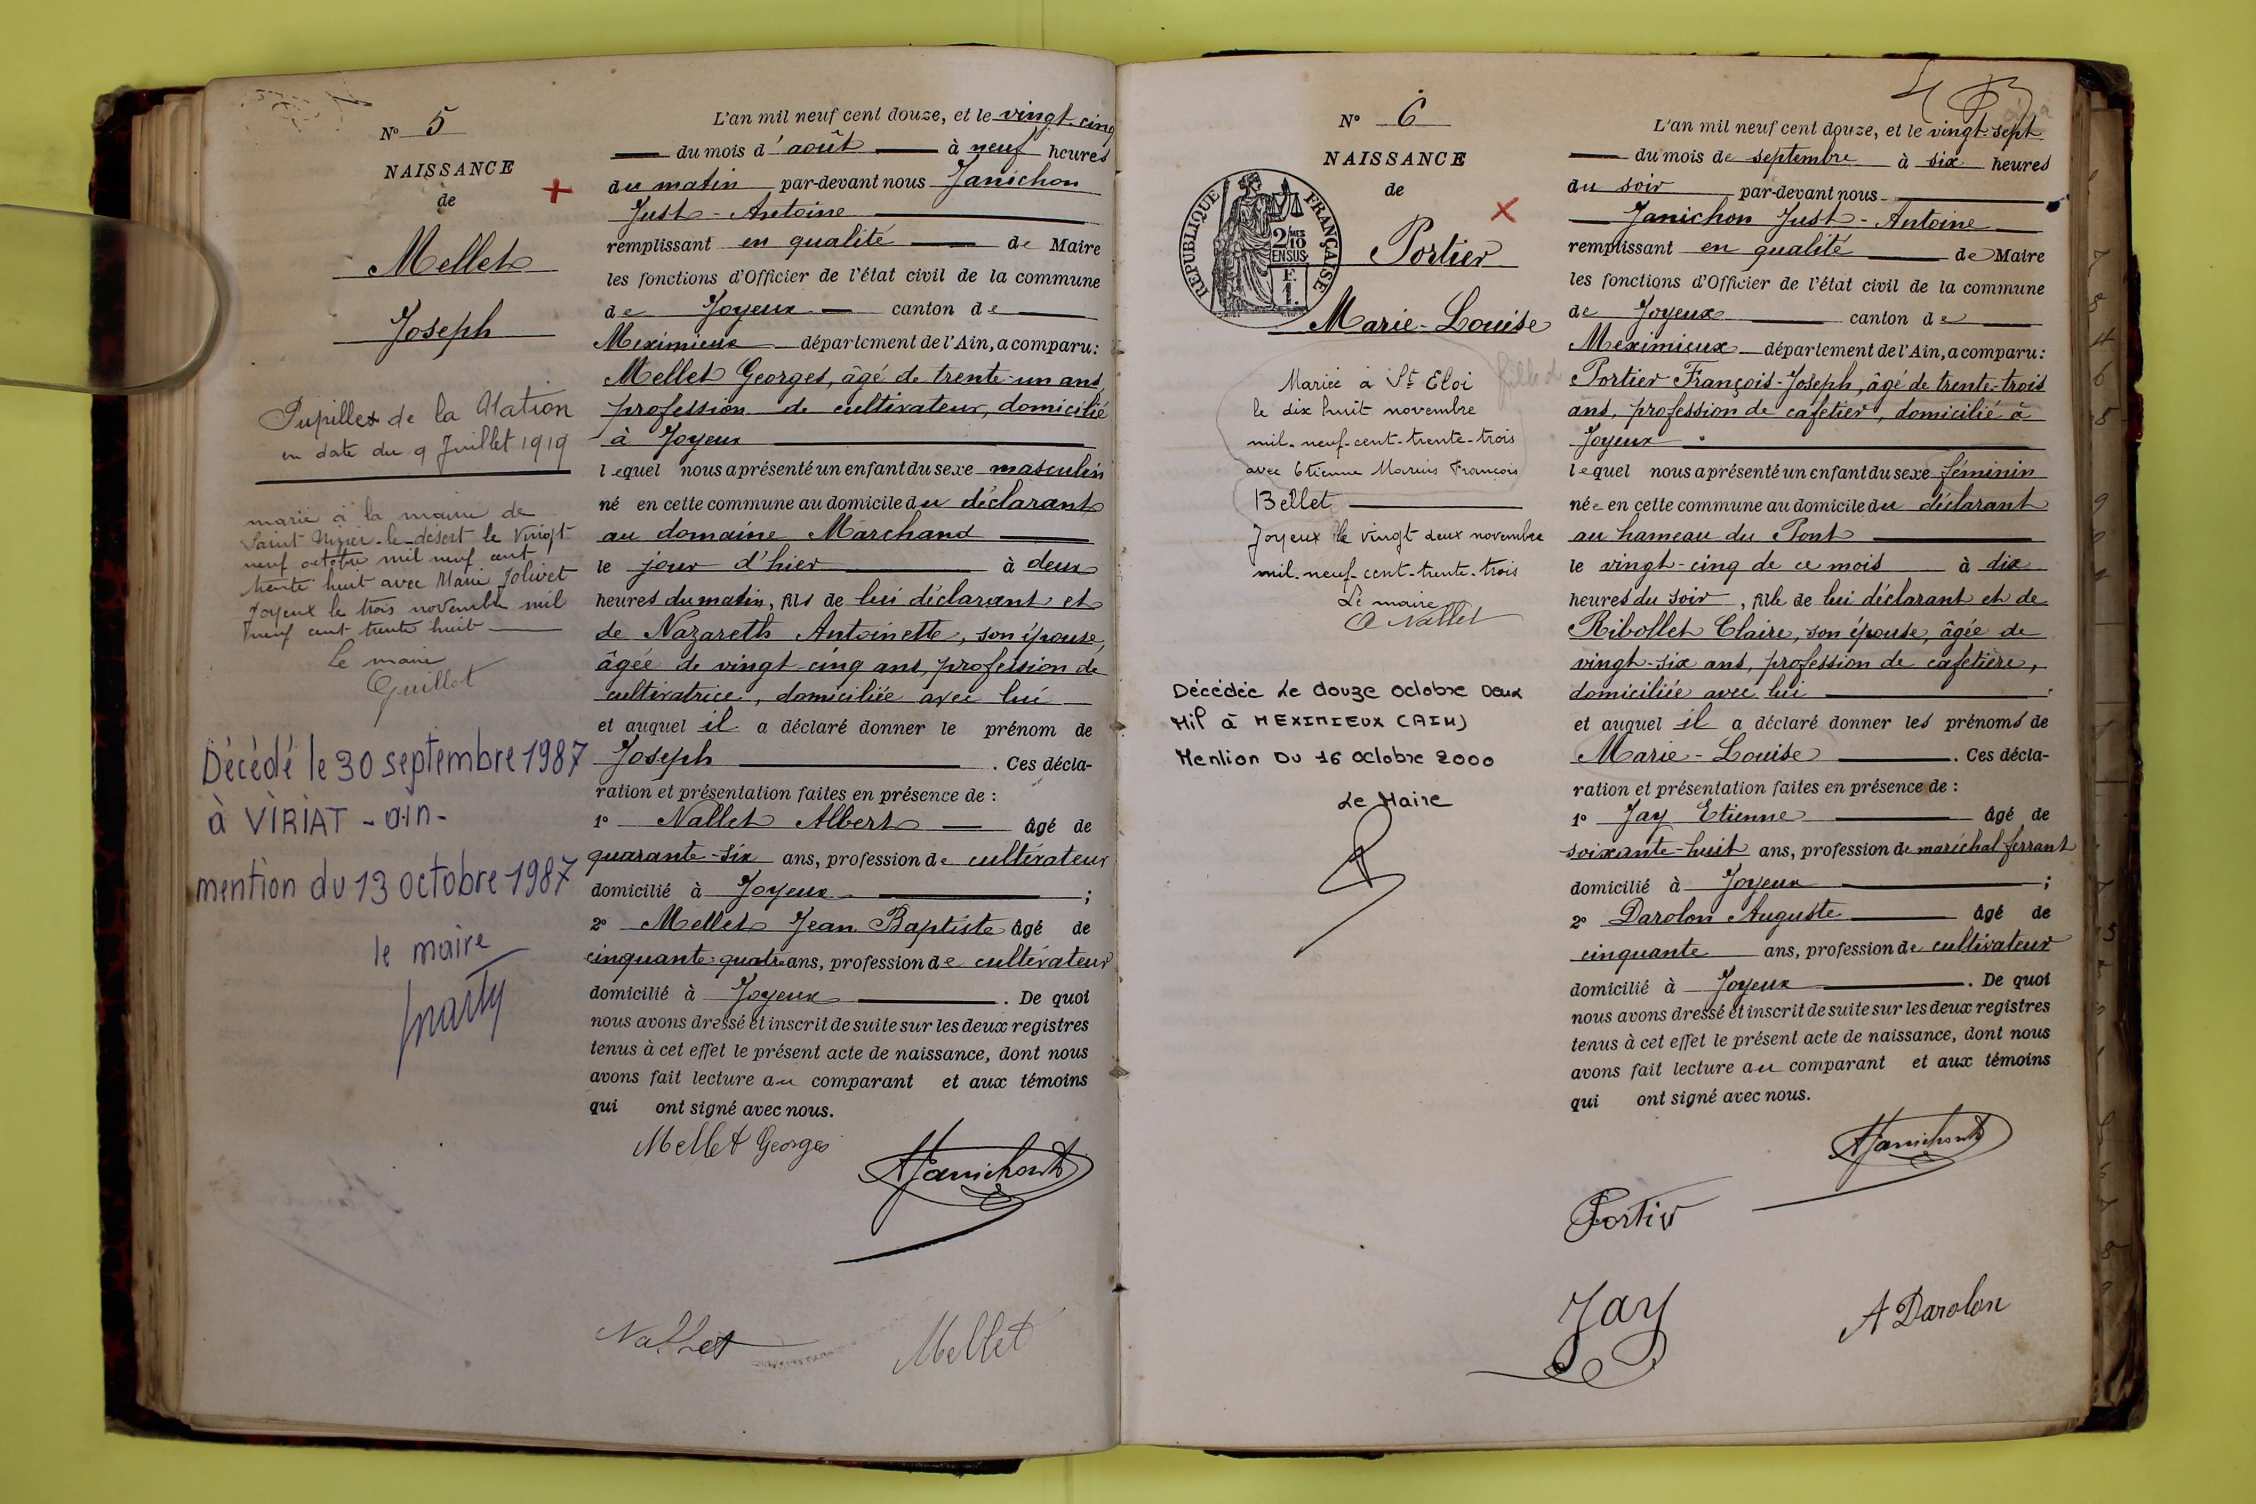 N° 5
NAISSANCE
de
Mellet
Joseph
Pupille de la Nation
en date du 9 Juillet 1919
marié à la mairie de
Saint Nizier-le-désert le vingt
neuf octobre mil neuf cent
trente huit avec Marie Jolivet
Joyeux le trois novembre mil
neuf cent trente huit
Le maire
Guillot
Décédé le 30 septembre 1987
à VIRIAT - ain -
mention du 13 octobre 1987
le maire
L'an mil neuf cent douze, et le vingt-cinq
du mois d'août à neuf heures
du matin par-devant nous Janichon
Just-Antoine
remplissant en qualité de Maire
les fonctions d'Officier de l'état civil de la commune
de Joyeux canton de
Meximieux département de l'Ain, a comparu:
Mellet Georges, âgé de trente-un ans,
profession de cultivateur, domicilié
à Joyeux
lequel nous a présenté un enfant du sexe masculin
né en cette commune au domicile du déclarant
au domaine Marchand
le jour d'hier à deux
heures du matin, fils de lui déclarant et
de Nazareth Antoinette, son épouse,
âgée de vingt-cinq ans, profession de
cultivatrice, domiciliée avec lui
et auquel il a déclaré donner le prénom de
Joseph . Ces décla-
ration et présentation faites en présence de :
1° Nallet Albert âgé de
quarante-six ans, profession de cultivateur
domicilié à Joyeux ;
2° Mellet Jean Baptiste âgé de
cinquante-quatre ans, profession de cultivateur
domicilié à Joyeux . De quoi
nous avons dressé et inscrit de suite sur les deux registres
tenus à cet effet le présent acte de naissance, dont nous
avons fait lecture au comparant et aux témoins
qui ont signé avec nous.
Mellet Georges
Janichon
Nallet
Mellet
N° 6
NAISSANCE
de
RÉPUBLIQUE FRANÇAISE
2/10 MES
EN SUS
F.
1.
Portier
Marie-Louise
Mariée à St Eloi
le dix huit novembre
mil-neuf-cent-trente-trois
avec Etienne Marius François
Bellet
Joyeux le vingt deux novembre
mil-neuf-cent-trente-trois
Le maire
Nallet
Décédée Le douze octobre Deux
Mil à MEXIMIEUX (AIN)
Mention Du 16 octobre 2000
Le Maire
L'an mil neuf cent douze, et le vingt-sept
du mois de septembre à six heures
du soir par-devant nous
Janichon Just-Antoine
remplissant en qualité de Maire
les fonctions d'Officier de l'état civil de la commune
de Joyeux canton de
Meximieux département de l'Ain, a comparu:
Portier François-Joseph, âgé de trente-trois
ans, profession de cafetier, domicilié à
Joyeux
lequel nous a présenté un enfant du sexe féminin
née en cette commune au domicile du déclarant
au hameau du Pont
le vingt-cinq de ce mois à dix
heures du soir, fille de lui déclarant et de
Ribollet Claire, son épouse, âgée de
vingt-six ans, profession de cafetière,
domiciliée avec lui
et auquel il a déclaré donner les prénoms de
Marie-Louise . Ces décla-
ration et présentation faites en présence de :
1° Jay Etienne âgé de
soixante-huit ans, profession de maréchal-ferrant
domicilié à Joyeux ;
2° Darolon Auguste âgé de
cinquante ans, profession de cultivateur
domicilié à Joyeux . De quoi
nous avons dressé et inscrit de suite sur les deux registres
tenus à cet effet le présent acte de naissance, dont nous
avons fait lecture au comparant et aux témoins
qui ont signé avec nous.
Janichon
Portier
Jay
A Darolon